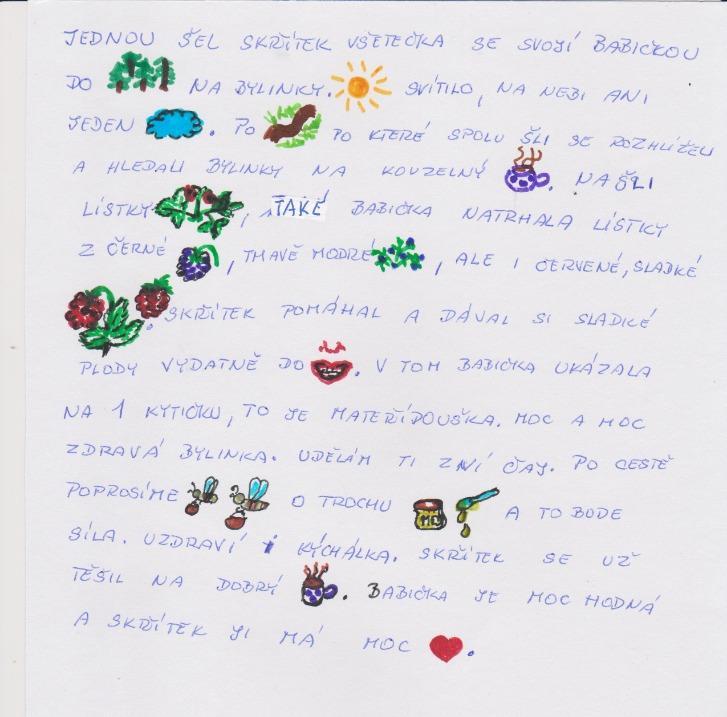 JEDNOU ŠEL SKŘÍTEK VŠETEČKA SE SVOJÍ BABIČKOU
DO NA BYLINKY. SVÍTILO, NA NEBI ANI
JEDEN . PO PO KTERÉ SPOLU ŠLI SE ROZHLÍŽELI
A HLEDALI BYLINKY NA KOUZELNÝ . NAŠLI
LÍSTKY , TAKÉ BABIČKA NATRHALA LÍSTKY
Z ČERNÉ , TMAVĚ MODRÉ , ALE I ČERVENÉ, SLADKÉ
. SKŘÍTEK POMÁHAL A DÁVAL SI SLADKÉ
PLODY VYDATNĚ DO . V TOM BABIČKA UKÁZALA
NA 1 KYTIČKU, TO JE MATEŘÍDOUŠKA. MOC A MOC
ZDRAVÁ BYLINKA. UDĚLÁM TI Z NÍ ČAJ. PO CESTĚ
POPROSÍME O TROCHU MED A TO BUDE
SÍLA. UZDRAVÍ I KÝCHÁLKA. SKŘÍTEK SE UŽ
TĚŠIL NA DOBRÝ . BABIČKA JE MOC HODNÁ
A SKŘÍTEK JI MÁ MOC .